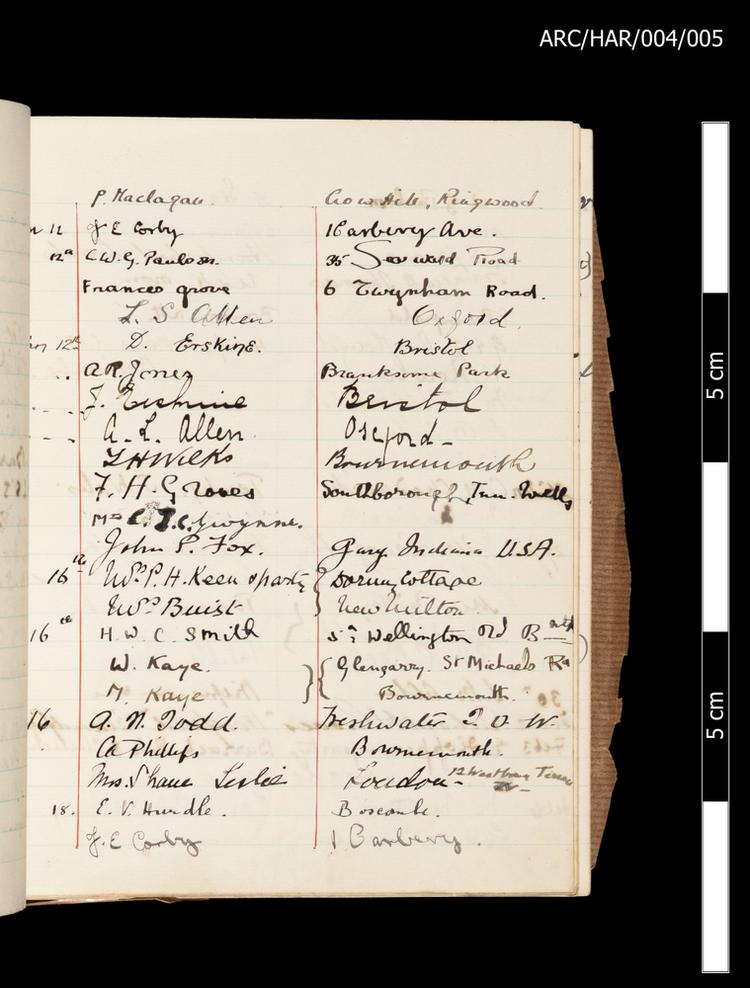 ARC/HAR/004/005
P. Maclagan. Crow Hill, Ringwood
12 J E Corby 1 Carbery Ave.
12th C.W.G. Paulson. 35 Seaward Road
Frances Grove 6 Twynham Road.
L. S Allen Oxford.
12th D. Erskine. Bristol
.. A R. Jones Branksome Park
J. Erskine Bristol
A. L. Allen. Oxford -
L H Wilks Bournemouth
F. H. Groves Southborough, Tun. Wells
Mrs Gwynne.
John P. Fox. Gary. Indiana U.S.A.
16th Mrs. P. H. Keen & party Dormy Cottage
Mrs. Buist New Milton
16th H. W. C. Smith 5 Wellington Rd B-mth
W. Kaye. Glengarry. St Michaels Rd
M. Kaye Bournemouth.
16 A. N. Todd. Freshwater I. O. W.
A Phillips Bournemouth.
Mrs. Shane Leslie London - 12 Westbourne Terrace
18. E. V. Hurdle. Boscombe.
J. E Corby 1 Carbery.
5 cm
5 cm